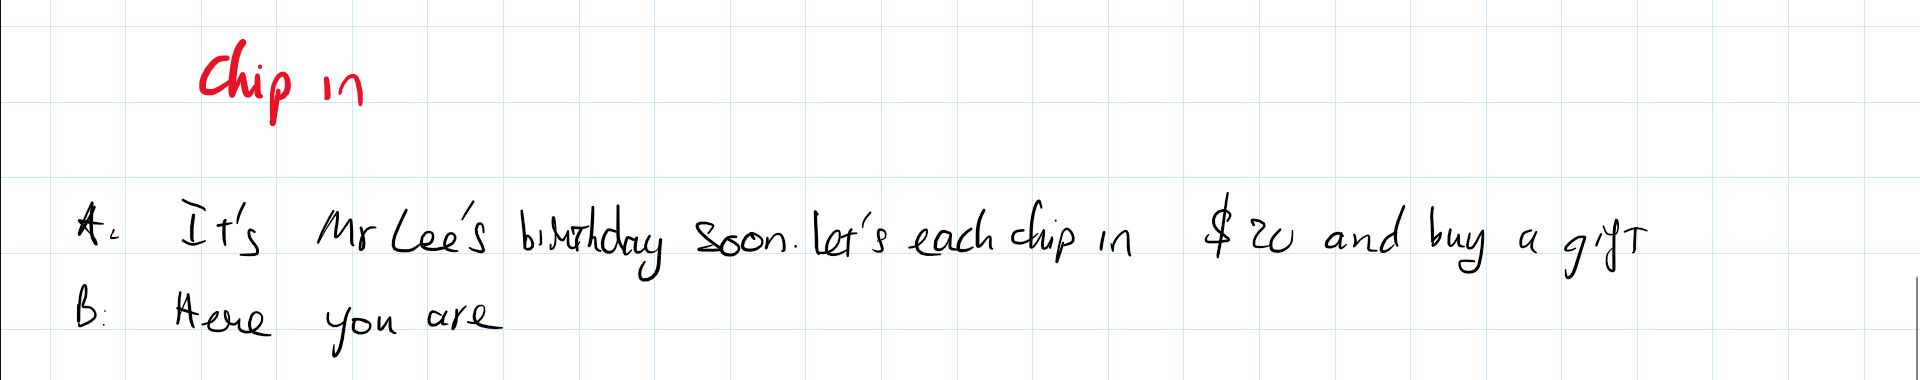 Chip in
A: It's Mr Lee's birthday soon. Let's each chip in $20 and buy a gift
B: Here you are